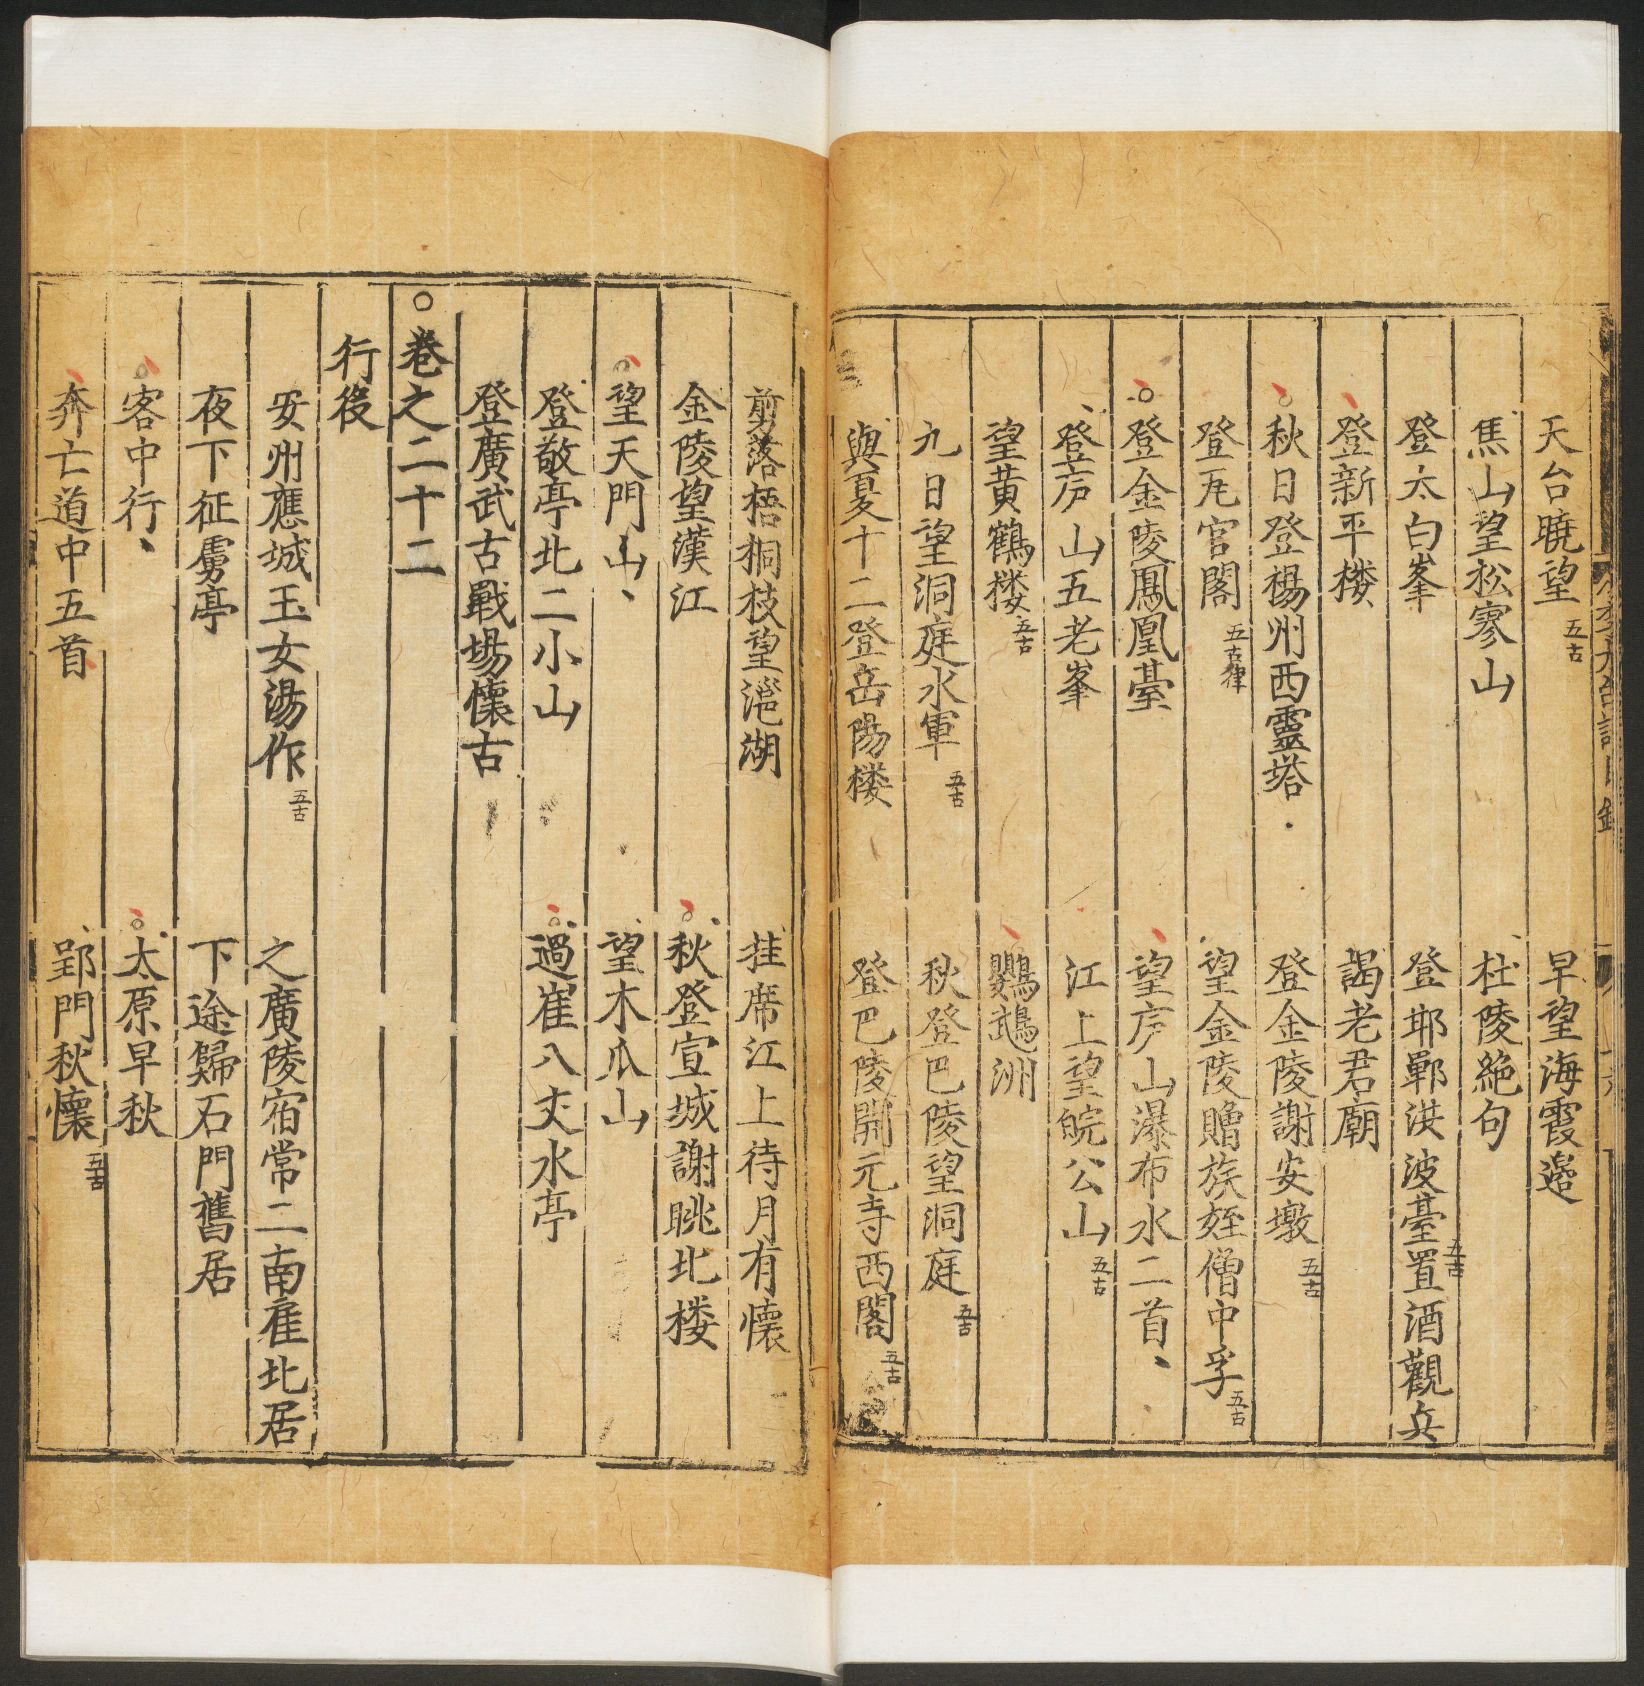 天台曉望 五古 早望海霞邉
焦山望松寥山 杜陵絶句
登太白峯 登邯鄲洪波臺置酒觀兵 五古
登新平楼 謁老君廟
秋日登楊州西靈塔 登金陵謝安墩 五古
登瓦官閣 五古律 望金陵贈族姪僧中孚 五古
登金陵鳳凰臺 望庐山瀑布水二首
登庐山五老峯 江上望皖公山 五古
望黄鶴楼 五古 鸚鵡洲
九日望洞庭水軍 五古 秋登巴陵望洞庭 五古
與夏十二登岳陽楼 登巴陵開元寺西閣 五古
剪落梧桐枝望㴩湖 挂席江上待月有懷
金陵望漢江 秋登宣城謝眺北楼
望天門山 望木瓜山
登敬亭北二小山 過崔八丈水亭
登廣武古戰場懷古
○巻之二十二
行後
安州應城玉女湯作 五古 之廣陵宿常二南隺北居
夜下征虜亭 下途歸石門舊居
客中行 太原早秋
奔亡道中五首 郢門秋懷 五古